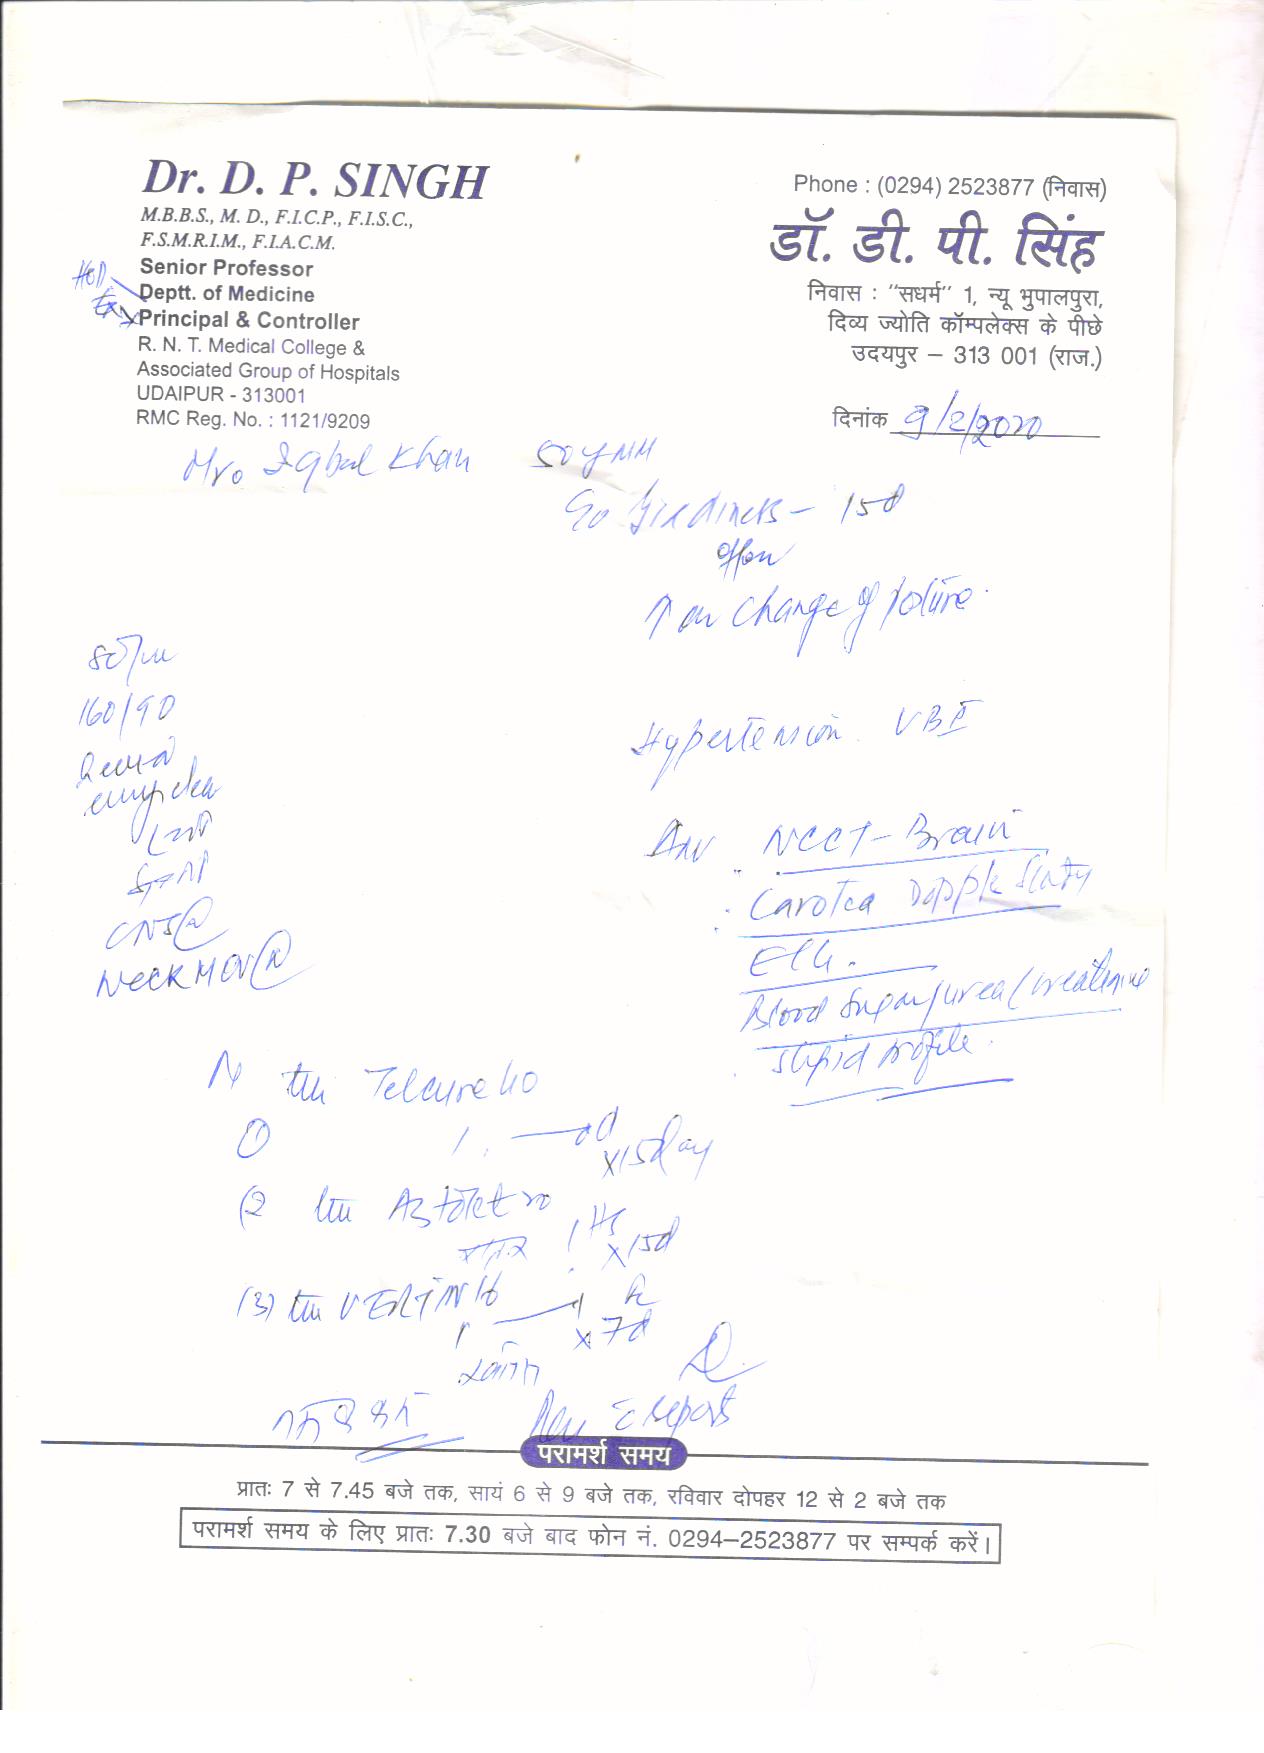 Dr. D. P. SINGH
M.B.B.S., M. D., F.I.C.P., F.I.S.C.,
F.S.M.R.I.M., F.I.A.C.M.
Senior Professor
HOD
Deptt. of Medicine
Ex
Principal & Controller
R. N. T. Medical College &
Associated Group of Hospitals
UDAIPUR - 313001
RMC Reg. No. : 1121/9209
Phone : (0294) 2523877 (निवास)
डॉ. डी. पी. सिंह
निवास : "सधर्म" 1, न्यू भुपालपुरा,
दिव्य ज्योति कॉम्पलेक्स के पीछे
उदयपुर – 313 001 (राज.)
दिनांक 9/2/2020
Mr. Iqbal Khan 50 y MM
Giddiness – 15d
↑ on change of posture.
80/m
160/90
CNS
NECK MOV
Hypertension. VBI
NCCT - Brain
Doppler Study
ECG.
Blood Sugar/urea/creatinine
Lipid profile.
Telcure 40
①
1
od
x15day
(2
10
1 HS
x15d
(3) VERTIN 16
1
1
x 7d
नमक कम
Rev c reports
परामर्श समय
प्रातः 7 से 7.45 बजे तक, सायं 6 से 9 बजे तक, रविवार दोपहर 12 से 2 बजे तक
परामर्श समय के लिए प्रातः 7.30 बजे बाद फोन नं. 0294–2523877 पर सम्पर्क करें।